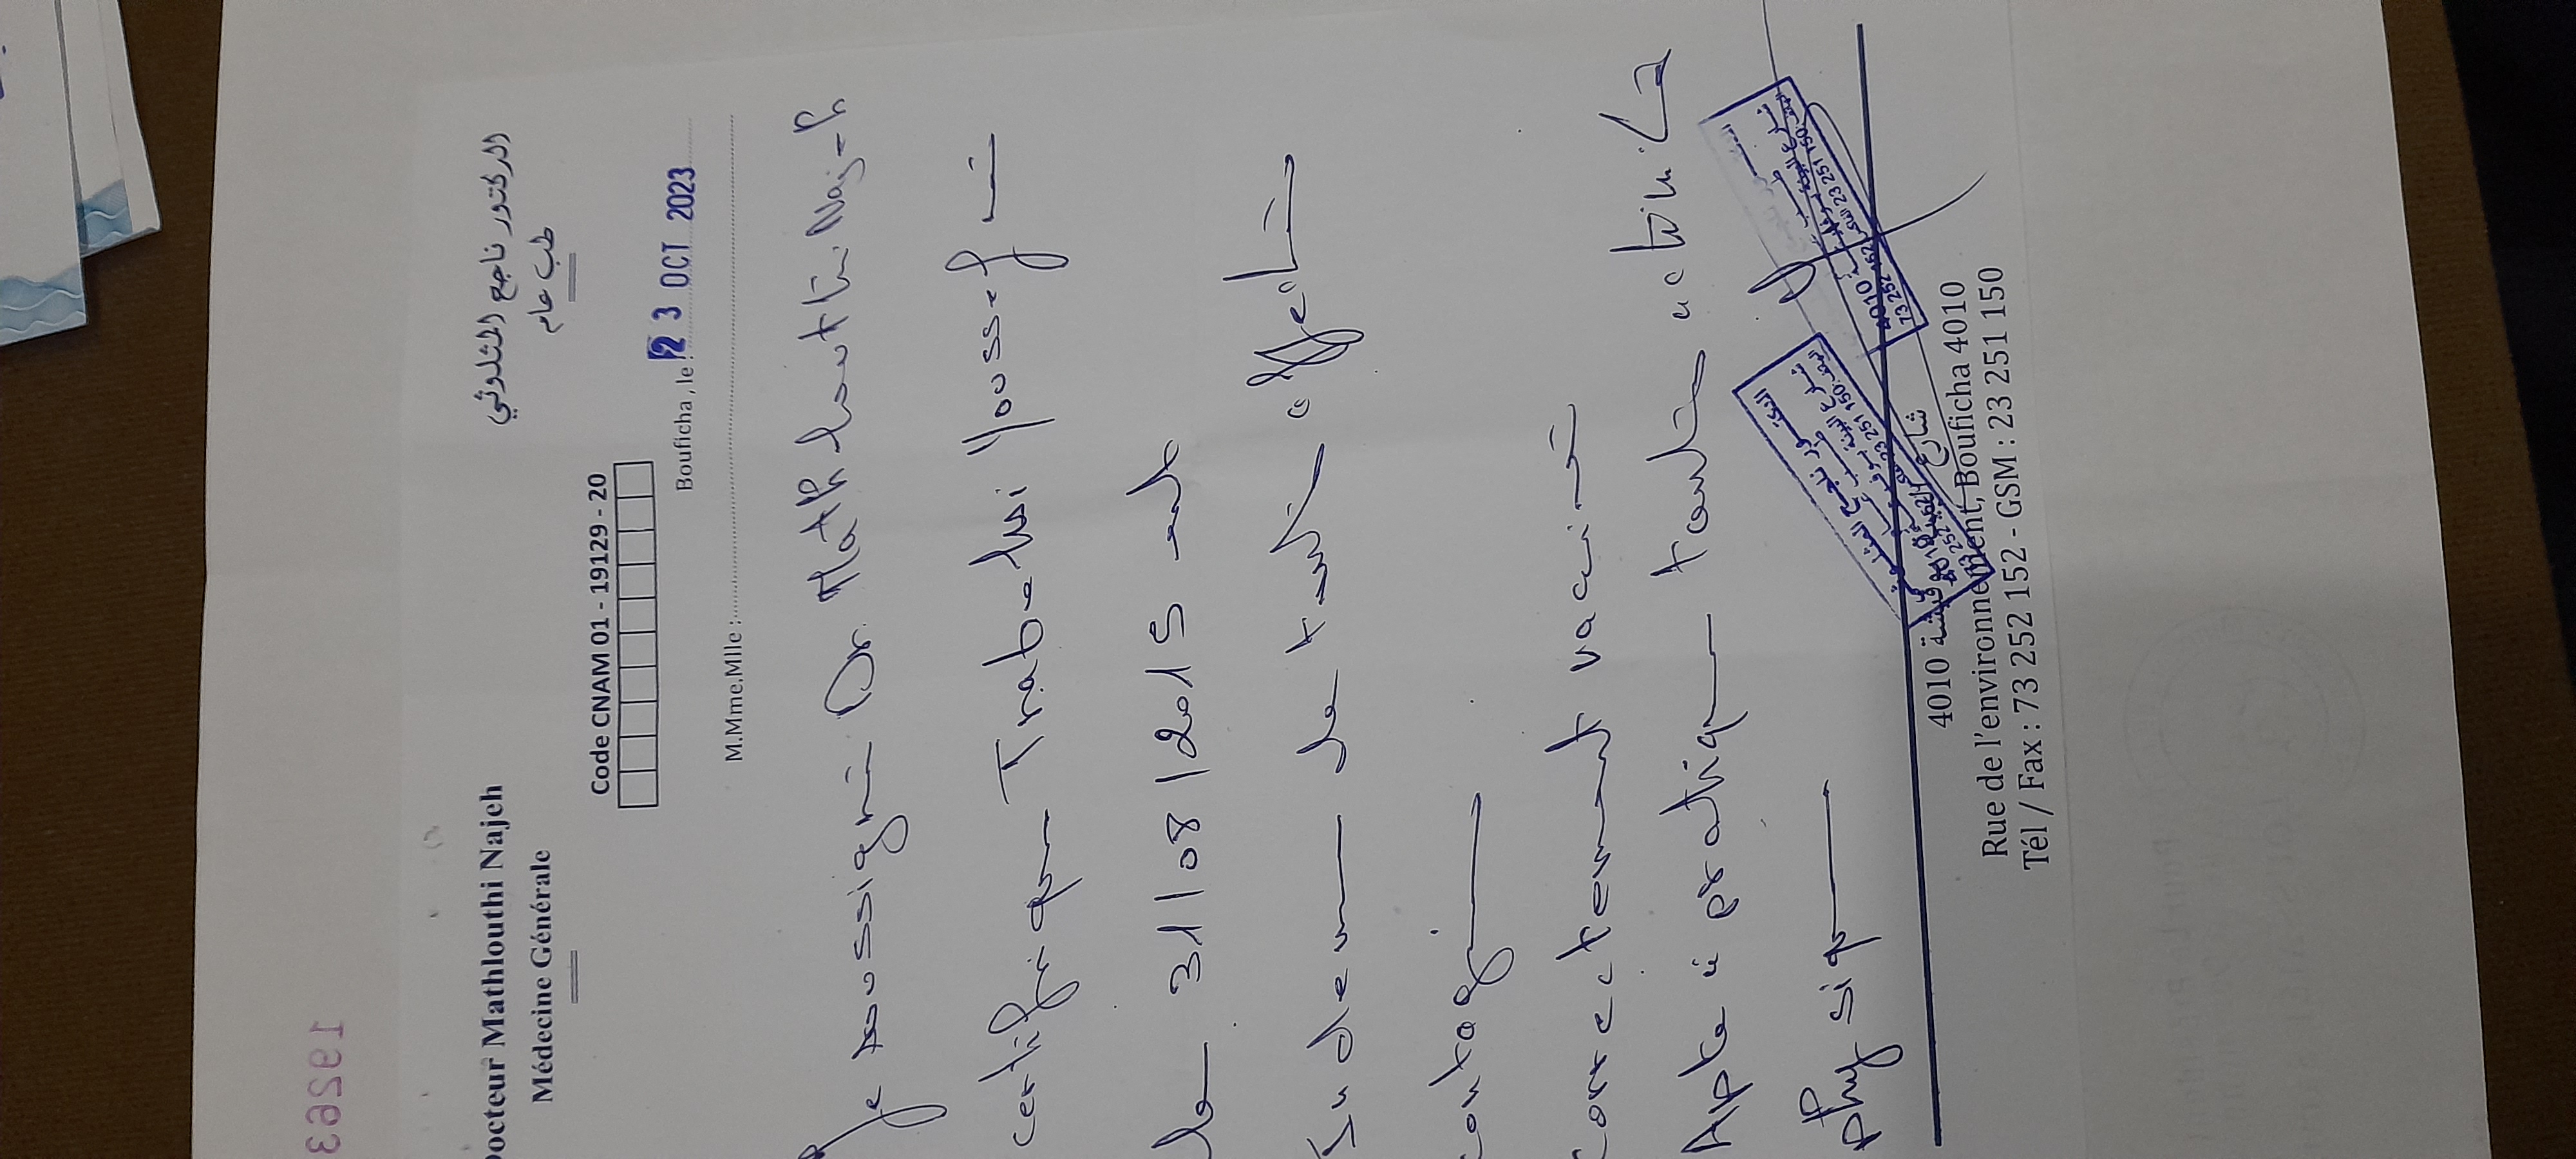 19263
Docteur Mathlouthi Najeh
Médecine Générale
الدكتور ناجح المثلوثي
طب عام
Code CNAM 01 - 19129 - 20
Bouficha , le : 23 OCT 2023
M.Mme.Mlle :
Je soussigné Dr. Mathlouthi Najeh
certifie que Trabelsi Youssef né
le 31/08/2015 est
Indemne de toute affection
contagieuse
correctement vacciné
Apte à pratiquer toute activité
physique
شارع البيئة بوفيشة 4010
Rue de l'environnement, Bouficha 4010
Tél / Fax : 73 252 152 - GSM : 23 251 150